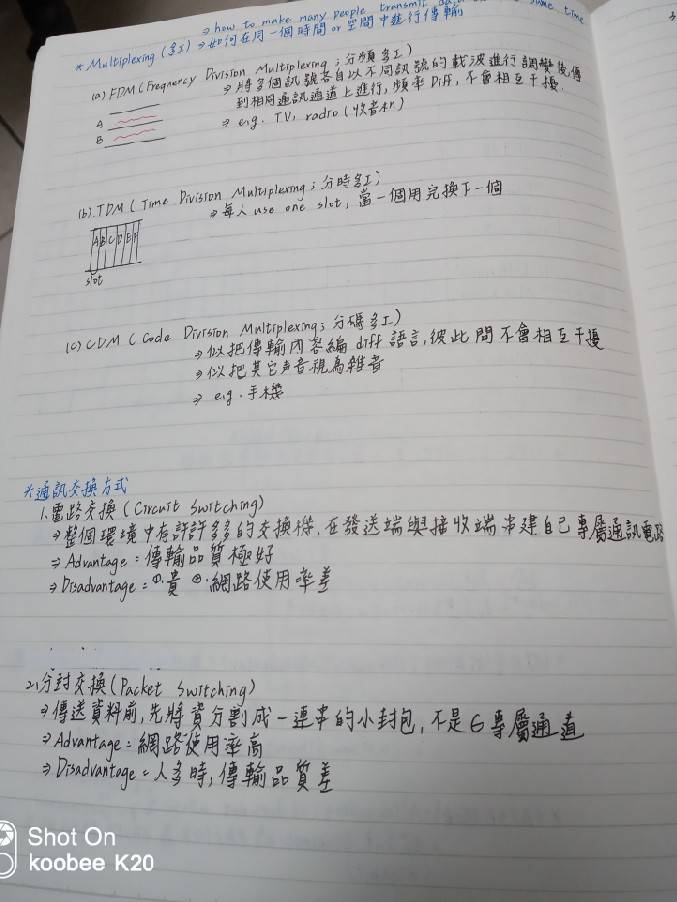 → how to make many people transmit data same time
* Multiplexing (多工) → 如何在同一個時間 or 空間中進行傳輸
(a) FDM (Frequency Division Multiplexing ; 分頻多工)
→ 將多個訊號各自以不同訊號的載波進行調變後,傳
到相同通訊通道上進行, 頻率 Diff, 不會相互干擾.
→ e.g. TV, radio (收音机)
A
B
(b). TDM (Time Division Multiplexing ; 分時多工)
→ 每人 use one slot, 當一個用完換下一個
A B C D E F
slot
(c) CDM (Code Division Multiplexing ; 分碼多工)
→ 似把傳輸內容編 diff 語言, 彼此間不會相互干擾
→ 似把其它声音視為雜音
→ e.g. 手機
* 通訊交換方式
1. 電路交換 (Circuit Switching)
→ 整個環境中有許許多多的交換機, 在發送端與接收端串建自己專屬通訊電路
→ Advantage : 傳輸品質極好
→ Disadvantage = ①. 貴 ②. 網路使用率差
2. 分封交換 (Packet Switching)
→ 傳送資料前, 先將資分割成一連串的小封包, 不是 專屬通道
→ Advantage = 網路使用率高
→ Disadvantage = 人多時, 傳輸品質差
Shot On
koobee K20